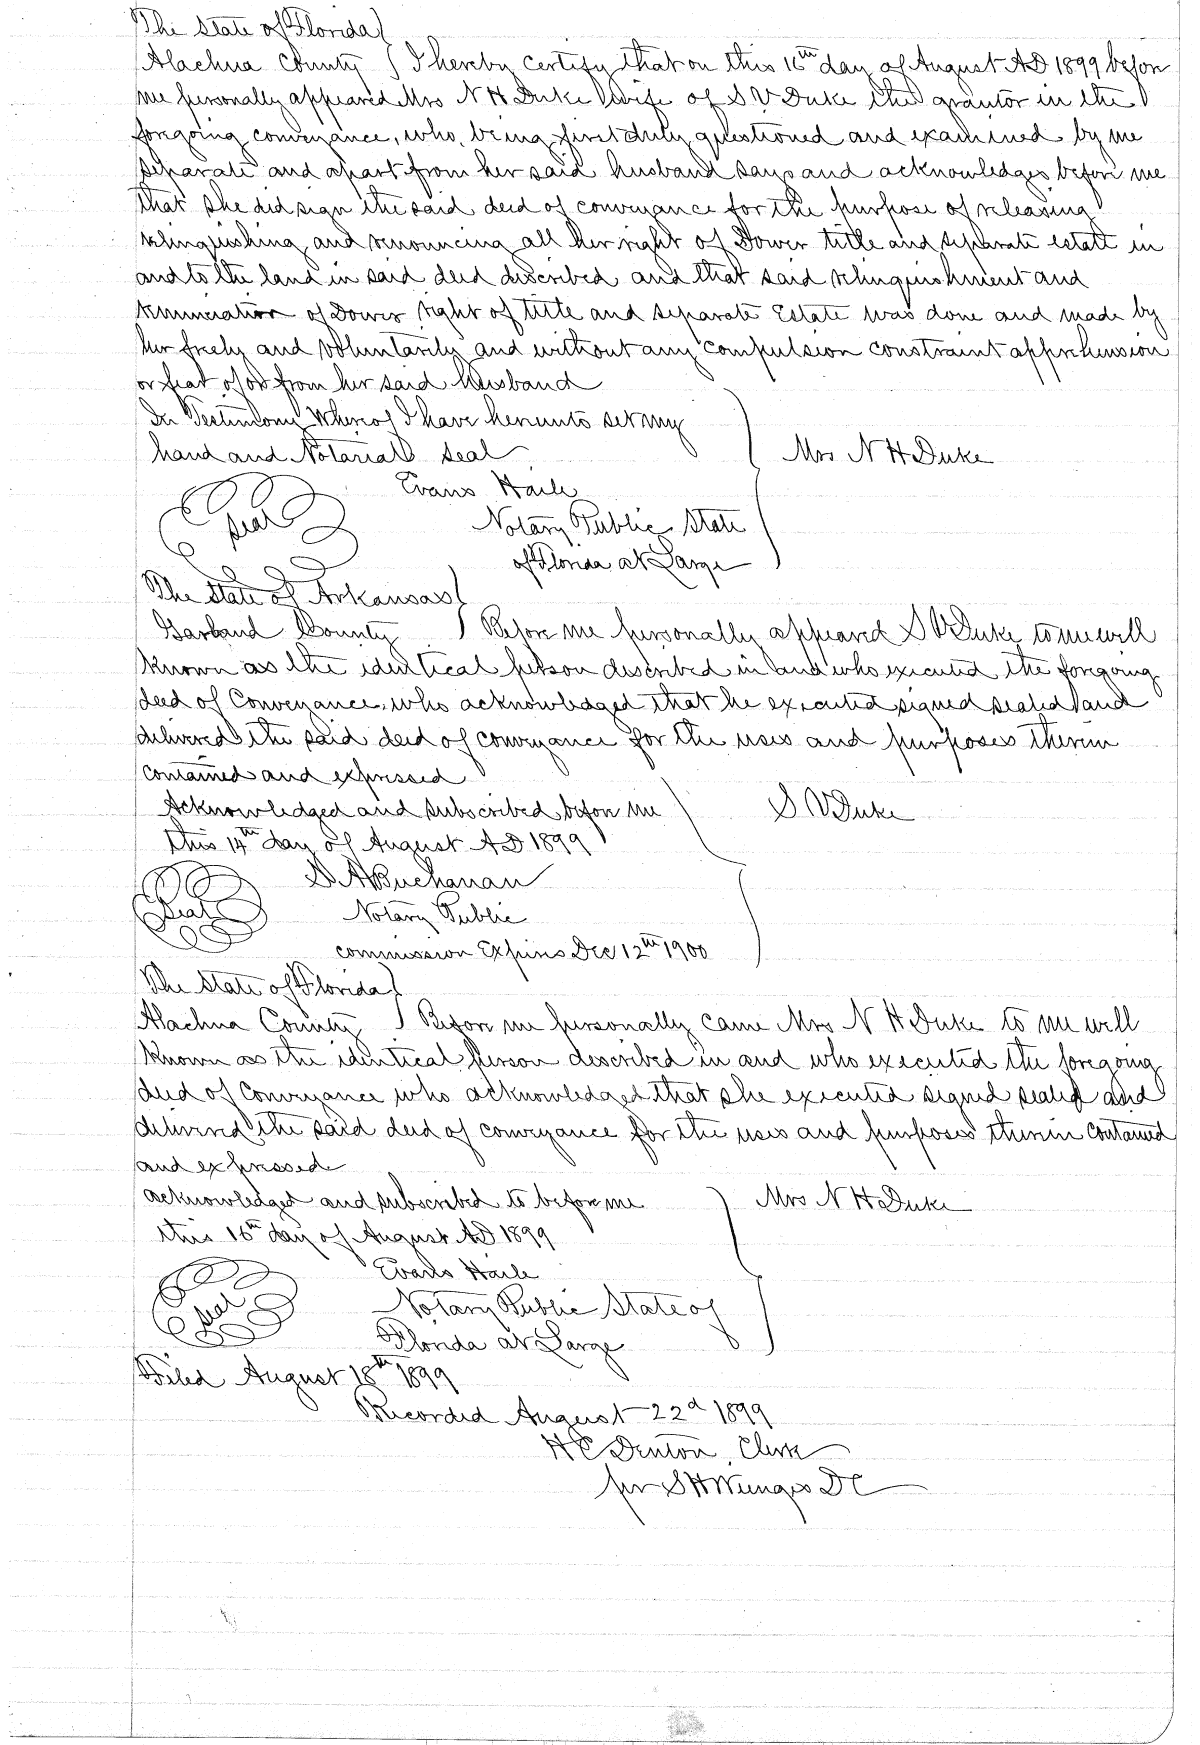 The State of Florida
Alachua County I hereby certify that on this 16th day of August AD 1899 before
me personally appeared Mrs N H Duke wife of S V Duke the grantor in the
foregoing conveyance, who, being first duly questioned and examined by me
separate and apart from her said husband says and acknowledges before me
that she did sign the said deed of conveyance for the purpose of releasing
relinquishing and renouncing all her right of Dower title and separate estate in
and to the land in said deed discribed and that said relinquishment and
renunciation of Dower right of title and separate Estate was done and made by
her freely and voluntarily and without any compulsion constraint apprehension
or fear of or from her said husband
In Testimony Whereof I have hereunto set my
hand and Notarial seal
Mrs N H Duke
Evans Haile
Seal
Notary Public State
of Florida at Large
The State of Arkansas
Garland County Before me personally appeared S V Duke to me well
known as the identical person described in and who executed the foregoing
deed of Conveyance, who acknowledged that he executed signed sealed and
delivered the said deed of conveyance for the uses and purposes therein
contained and expressed
Acknowledged and subscribed before me
S V Duke
this 14th day of August AD 1899
S A Buchanan
Seal
Notary Public
commission Expires Dec 12th 1900
The State of Florida
Alachua County Before me personally came Mrs N H Duke to me well
known as the identical person described in and who executed the foregoing
deed of Conveyance who acknowledged that she executed signed sealed and
delivered the said deed of conveyance for the uses and purposes therein contained
and expressed
acknowledged and subscribed to before me
Mrs N H Duke
this 16th day of August AD 1899
Evans Haile
Seal
Notary Public State of
Florida at Large
Filed August 18th 1899
Recorded August 22d 1899
H C Denton, Clerk
per S H Wienges DC